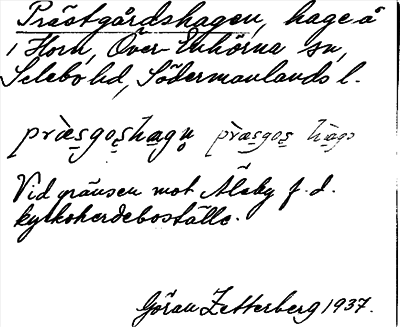 Prästgårdshagen, hage å
i Horn, Över-Enhörna sn,
Selebo hd, Södermanlands l.
præsgoshagn præsgos hage
Vid gränsen mot Älsby f.d.
kyrkoherdeboställe.
Göran Zetterberg 1937.